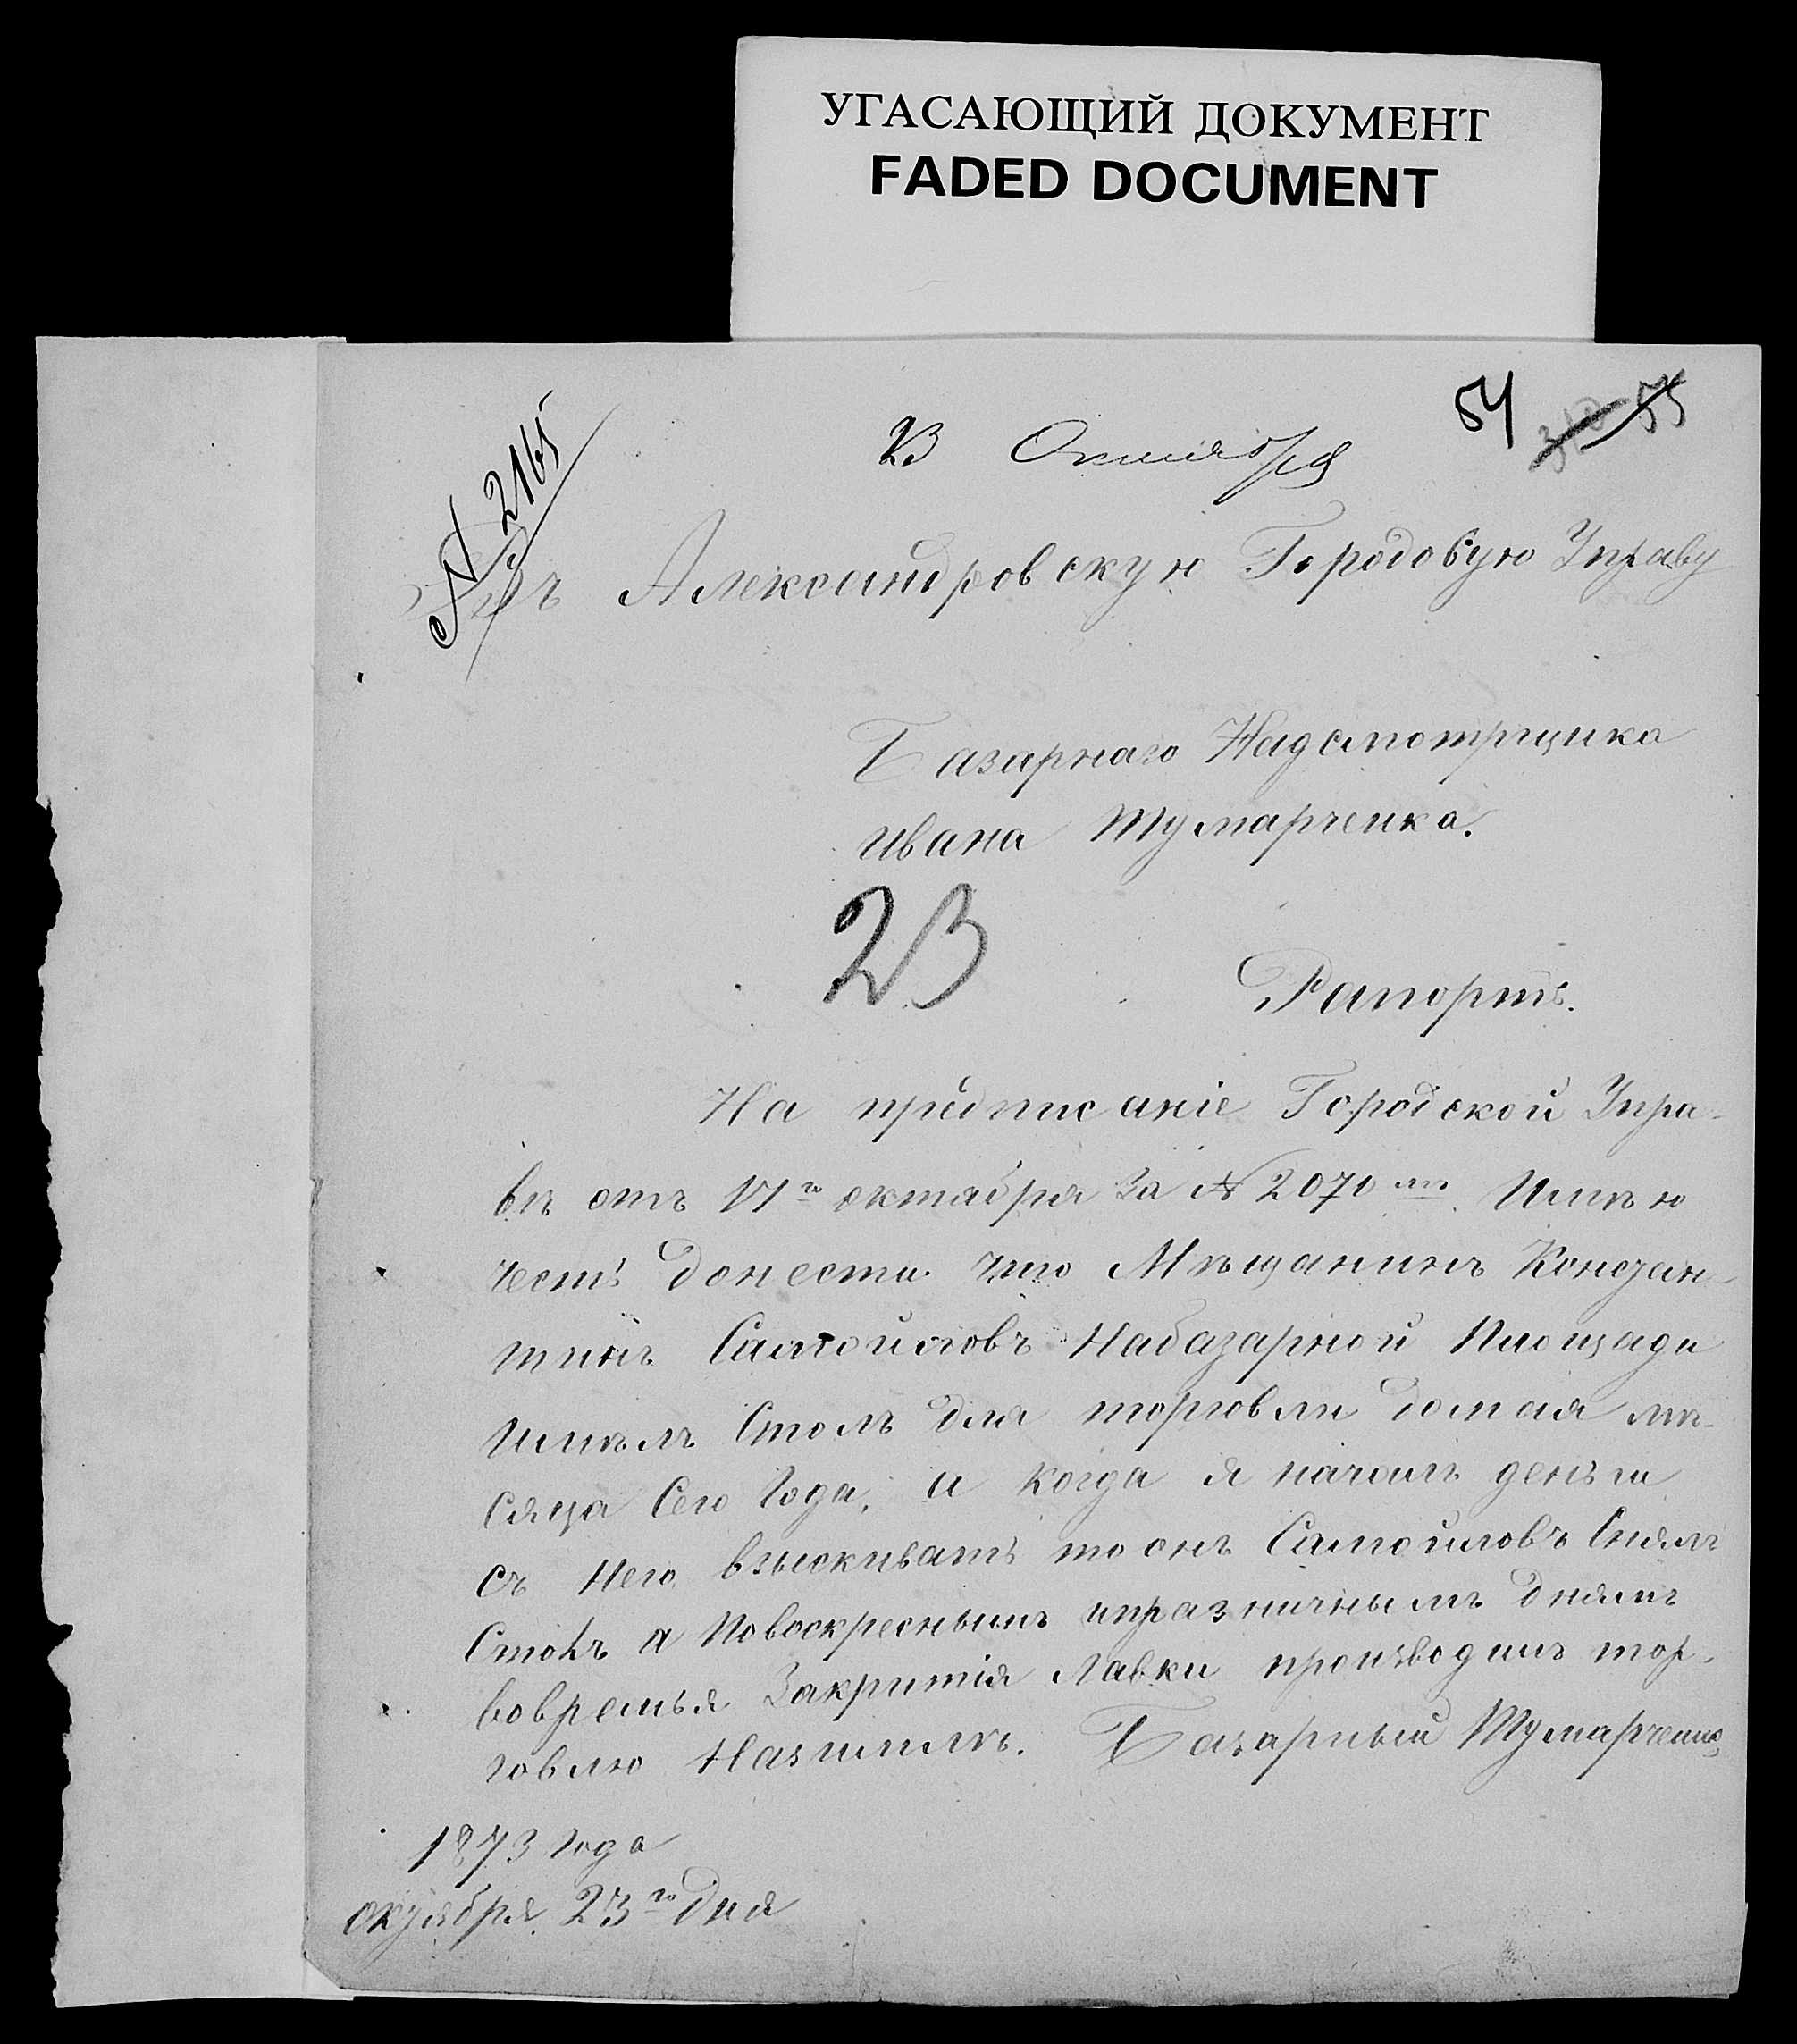 УГАСАЮЩИЙ ДОКУМЕНТ
FADED DOCUMENT
54
№ 2165
23 Октября
Въ Александровскую Городовую Управу
Базарнаго Надсмотрщика
Ивана Тумарченка.
23
Рапортъ.
На придписаніе Городской Упра-
вѣ отъ 17го октября За № 2070мъ Имѣю
честь донести что Мѣщанинъ Констан-
тинъ Самойловъ Набазарной Площади
Имѣлъ Столъ для торговли мѣ-
сяца Сего Года, И когда я началъ деньги
съ Него взыскивать то онъ Самойловъ Снялъ
Столъ а Повоскреснымъ ипразничнымъ днямъ
вовремья Закритія Лавки производитъ тор-
говлю Базарный Тумарченко
1873 года
октября 23го дня